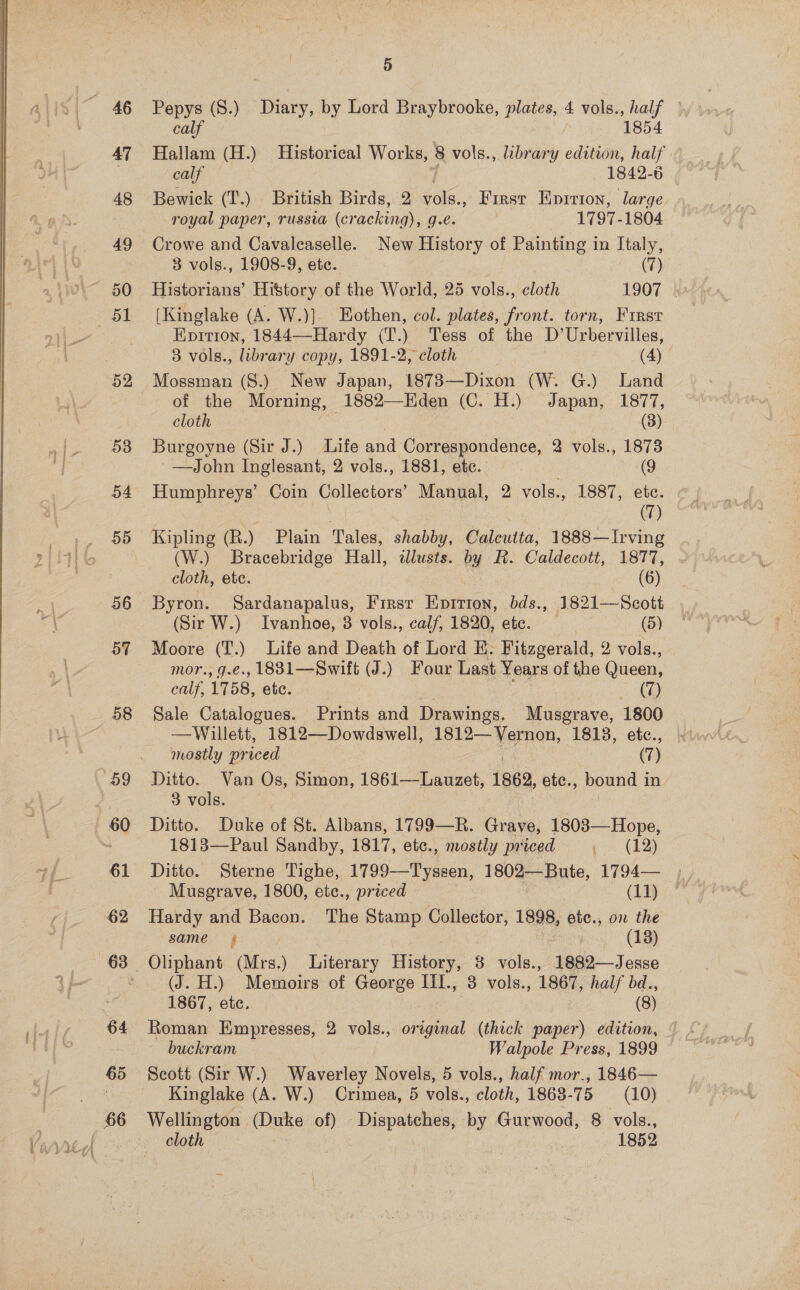 5
46 Pepys (S.) Diary, by Lord Braybrooke, plates, 4 vols., half
calf 1854
47 Hallam (H.) Historical Works, 8 vols., library edition, half
calf 1842-6
48 Bewick (T.) British Birds, 2 vols., First Edition, large
royal paper, russia (cracking), g.e. 1797-1804
49 Crowe and Cavalcaselle. New History of Painting in Italy,
3 vols., 1908-9, etc. (7)
50 Historians' History of the World, 25 vols., cloth 1907
51 [Kinglake (A. W.)] Eothen, col. plates, front. torn, First
Edition, 1844—Hardy (T.) Tess of the D'Urbervilles,
3 vols., library copy, 1891-2, cloth (4)
52 Mossman (S.) New Japan, 1873—Dixon (W. G.) Land
of the Morning, 1882—Eden (C. H.) Japan, 1877,
cloth (3)
53 Burgoyne (Sir J.) Life and Correspondence, 2 vols., 1873
—John Inglesant, 2 vols., 1881, etc. (9
54 Humphreys' Coin Collectors' Manual, 2 vols., 1887, etc.
(7)
55 Kipling (R.) Plain Tales, shabby, Calcutta, 1888—Irving
(W.) Bracebridge Hall, illusts. by R. Caldecott, 1877,
cloth, etc. (6)
56 Byron. Sardanapalus, First Edition, bds., 1821—Scott
(Sir W.) Ivanhoe, 3 vols., calf, 1820, etc. (5)
57 Moore (T.) Life and Death of Lord E. Fitzgerald, 2 vols.,
mor., g.e., 1831—Swift (J.) Four Last Years of the Queen,
calf, 1758, etc. (7)
58 Sale Catalogues. Prints and Drawings. Musgrave, 1800
—Willett, 1812—Dowdswell, 1812—Vernon, 1813, etc.,
mostly priced (7)
59 Ditto. Van Os, Simon, 1861—Lauzet, 1862, etc., bound in
3 vols.
60 Ditto. Duke of St. Albans, 1799—R. Grave, 1803—Hope,
1813—Paul Sandby, 1817, etc., mostly priced (12)
61 Ditto. Sterne Tighe, 1799—Tyssen, 1802—Bute, 1794—
Musgrave, 1800, etc., priced (11)
62 Hardy and Bacon. The Stamp Collector, 1898, etc., on the
same (13)
63 Oliphant (Mrs.) Literary History, 3 vols., 1882—Jesse
(J. H.) Memoirs of George III., 3 vols., 1867, half bd.,
1867, etc. (8)
64 Roman Empresses, 2 vols., original (thick paper) edition,
buckram Walpole Press, 1899
65 Scott (Sir W.) Waverley Novels, 5 vols., half mor., 1846—
Kinglake (A. W.) Crimea, 5 vols., cloth, 1863-75 (10)
66 Wellington (Duke of) Dispatches, by Gurwood, 8 vols.,
cloth 1852